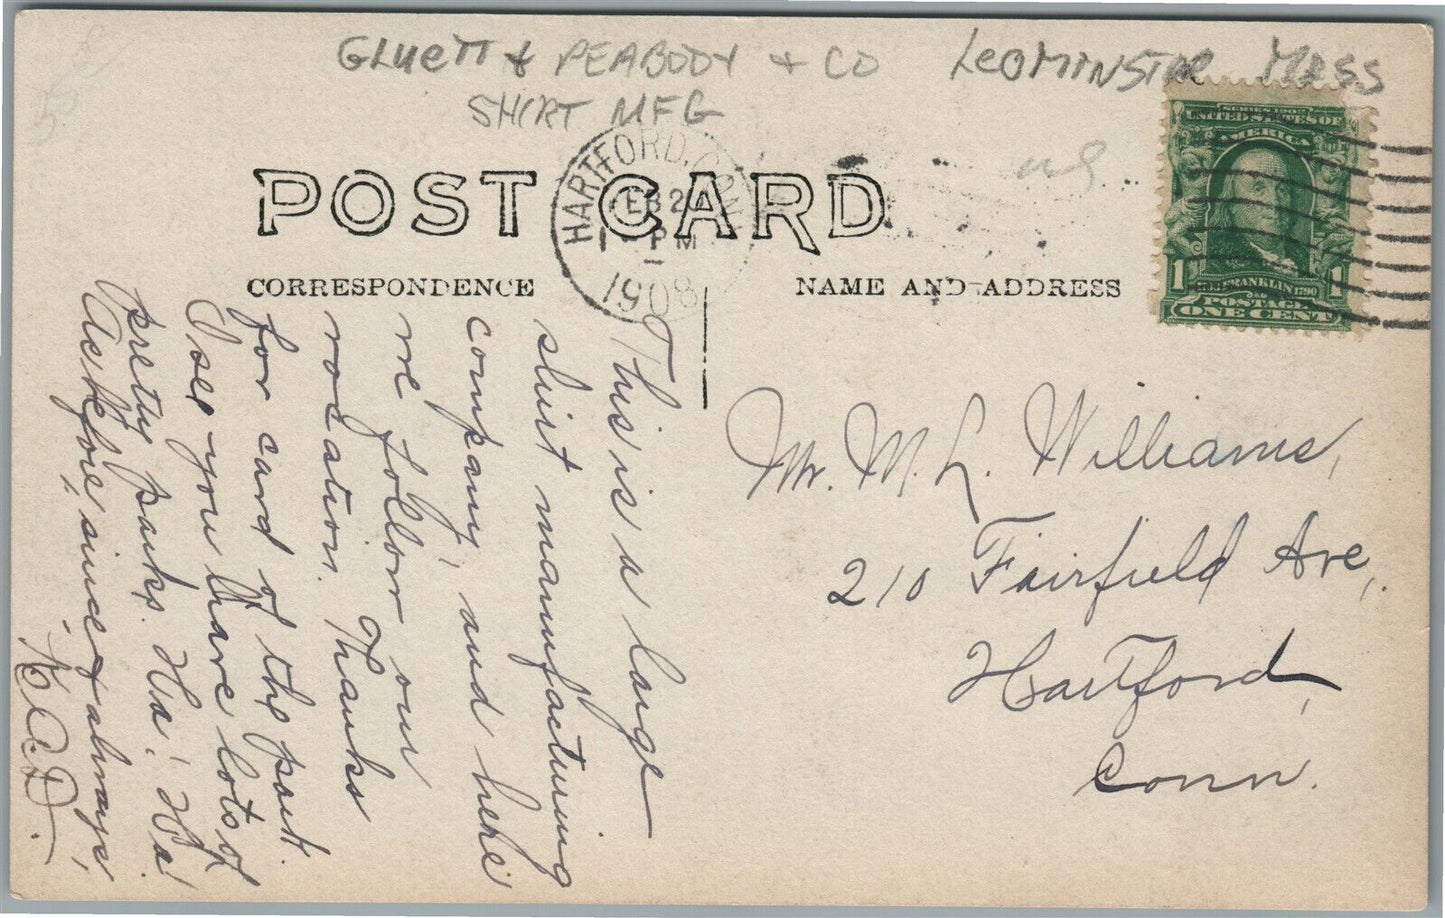 GLUETT & PEABODY & CO LEOMINSTER MASS
SHIRT MFG
POST CARD
HARTFORD, CONN
FEB 20
1 PM
1908
SERIES 1902
UNITED STATES OF
AMERICA
1 FRANKLIN 1790 1
POSTAGE
ONE CENT
CORRESPONDENCE
NAME AND ADDRESS
This is a large
shirt manufacturing
company, and here
we follow our
vocation. Thanks
for card of the park.
I see you have lots of
pretty parks. Ha! Ha!
"As before, since & always,"
K.A.D.
Mr. M. L. Williams,
210 Fairfield Ave,
Hartford,
Conn.